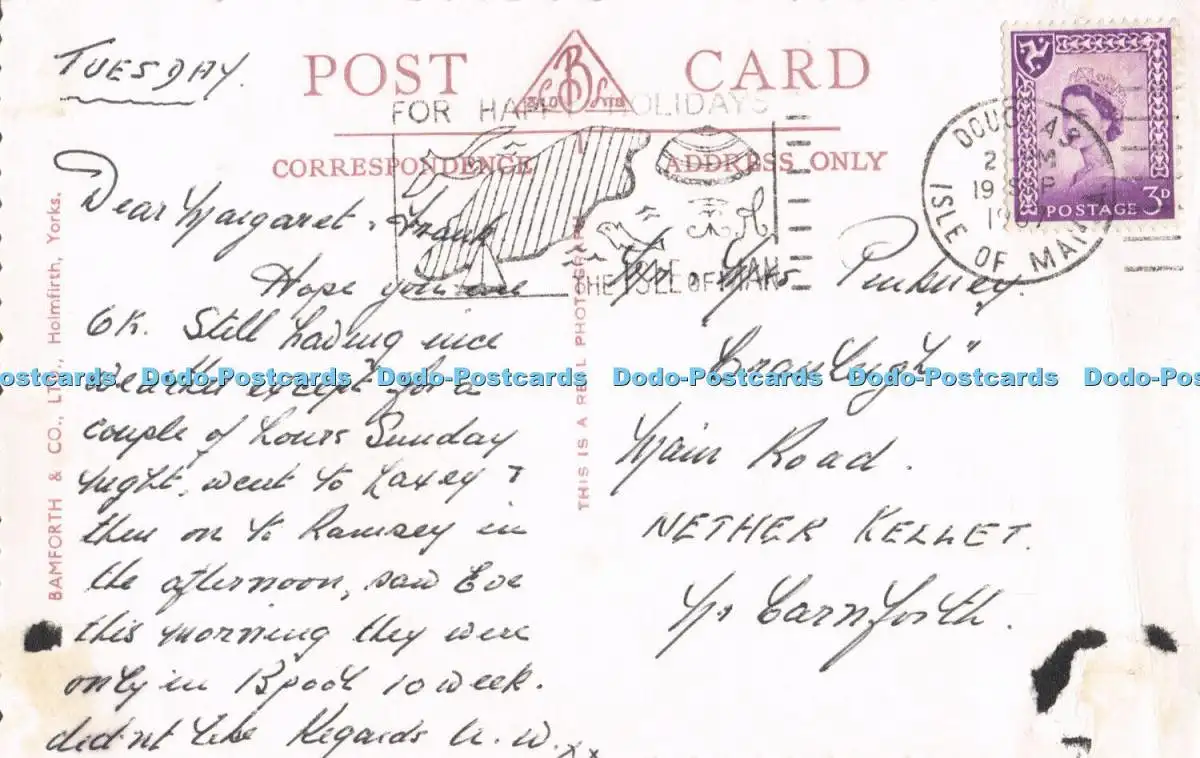 TUESDAY.
POST CARD
B & CO LTD
FOR HAPPY HOLIDAYS
CORRESPONDENCE
ADDRESS ONLY
THE ISLE OF MAN
DOUGLAS
19 SEP
ISLE OF MAN
POSTAGE 3D
BAMFORTH & CO., LTD., Holmfirth, Yorks.
THIS IS A REAL PHOTOGRAPH
Dear Margaret, Frank
Hope you are
OK. Still having nice
weather except for a
couple of hours Sunday
night, went to Laxey &
then on to Ramsey in
the afternoon, saw Eve
this morning they were
only in B'pool 10 week.
didn't like Regards U.W. xx
Mr Mrs Pinkney.
Main Road.
NETHER KELLET.
Nr Carnforth.
Dodo-Postcards Dodo-Postcards Dodo-Postcards Dodo-Postcards Dodo-Postcards Dodo-Postcards